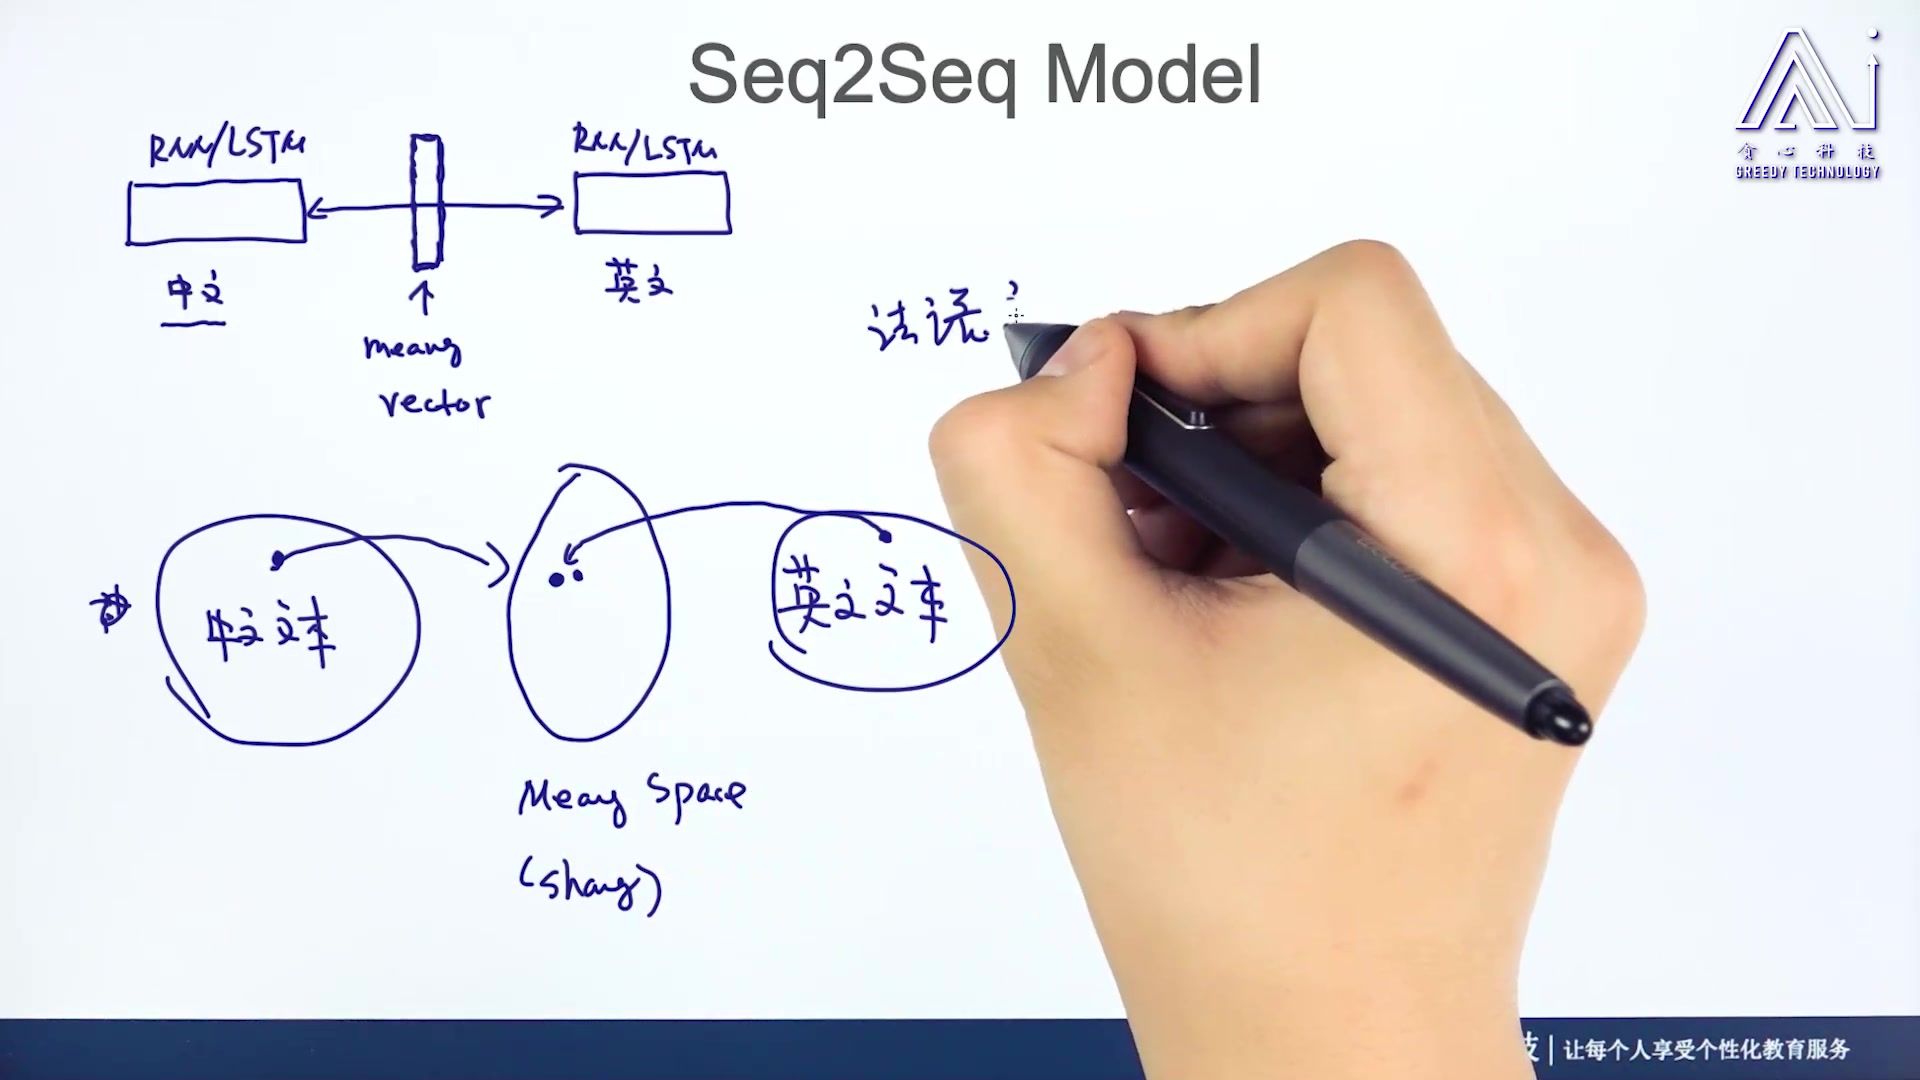 Seq2Seq Model
贪心科技
GREEDY TECHNOLOGY
RNN/LSTM
RNN/LSTM
中文
英文
meang
vector
法语
中文文本
英文文本
Meang Space
(shang)
技 | 让每个人享受个性化教育服务